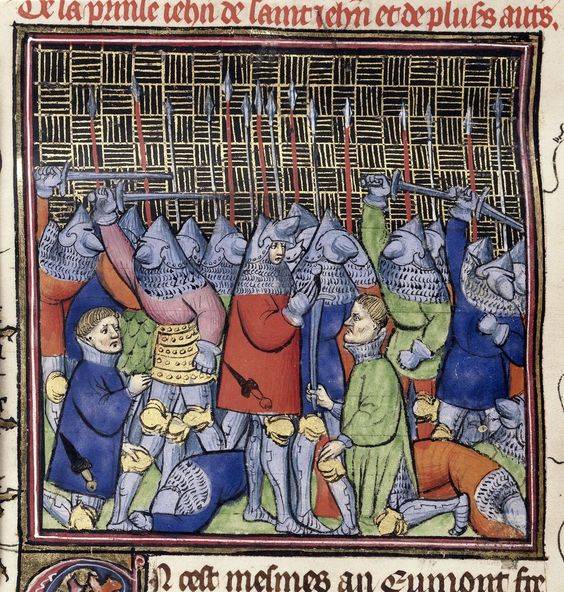 De la prinse iehn de saint iehn et de plus̾s aut̾s.
En cest mesmes an Eumont fre